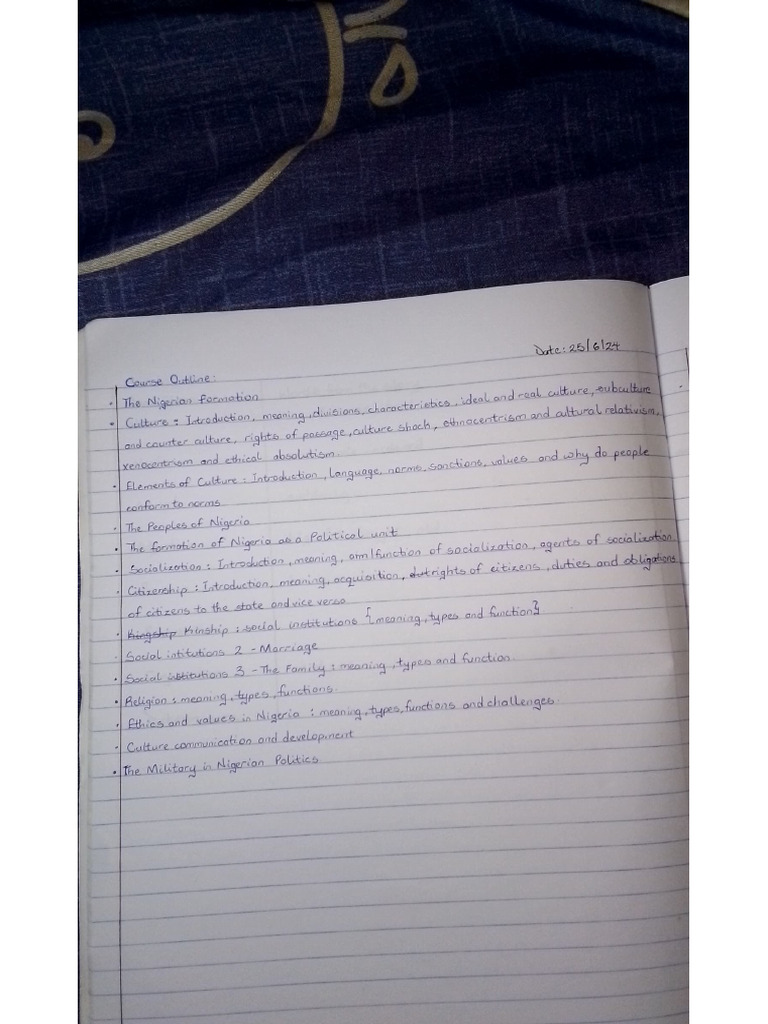 Date: 25/6/24
Course Outline:
• The Nigerian formation
• Culture: Introduction, meaning, divisions, characteristics, ideal and real culture, subculture
and counter culture, rights of passage, culture shock, ethnocentrism and cultural relativism,
xenocentrism and ethical absolutism.
• Elements of Culture: Introduction, language, norms, sanctions, values and why do people
conform to norms
• The Peoples of Nigeria
• The formation of Nigeria as a Political unit
• Socialization: Introduction, meaning, aim/function of socialization, agents of socialization
• Citizenship: Introduction, meaning, acquisition, rights of citizens, duties and obligations
of citizens to the state and vice versa
• Kingship Kinship: social institutions {meaning, types and function}
• Social intitutions 2 - Marriage
• Social institutions 3 - The Family: meaning, types and function.
• Religion: meaning, types, functions.
• Ethics and values in Nigeria: meaning, types, functions and challenges.
• Culture communication and development
• The Military in Nigerian Politics